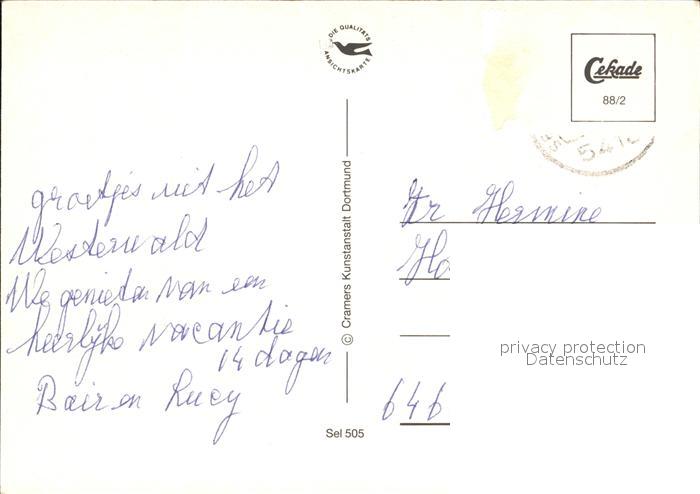 DIE QUALITÄTS
ANSICHTSKARTE
Cekade
88/2
541
groetjes uit het
Westerwald
We genieten van een
heerlijke vacantie
14 dagen
en Lucy
© Cramers Kunstanstalt Dortmund
Sel 505
Fr Hermine
Ho
646
privacy protection
Datenschutz